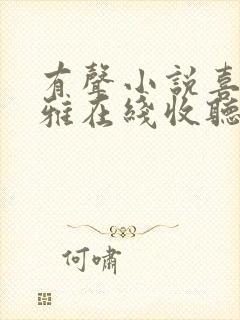 有聲小說喜
雅在綫收聽
何嘯